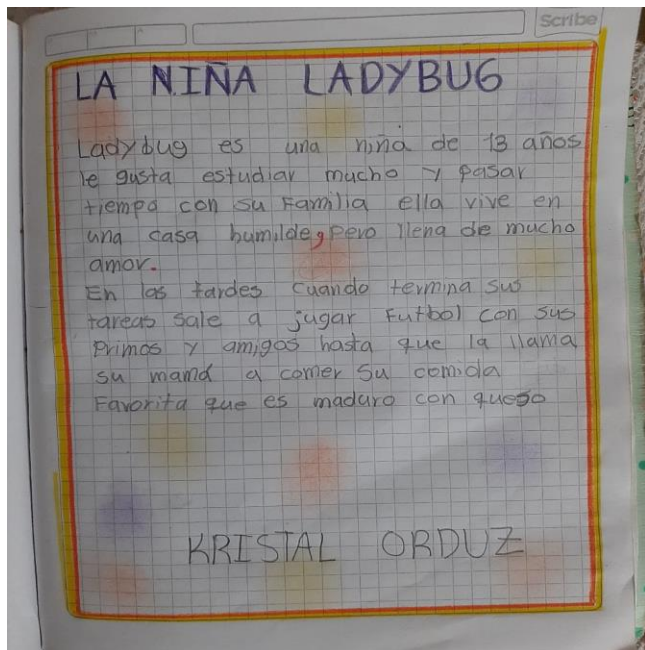 Scribe
LA NIÑA LADYBUG
Ladybug es una niña de 13 años
le gusta estudiar mucho y pasar
tiempo con su Familia ella vive en
una casa humilde, pero llena de mucho
amor.
En las tardes cuando termina sus
tareas sale a jugar Futbol con sus
Primos y amigos hasta que la llama
su mamá a comer su comida
Favorita que es maduro con queso
KRISTAL ORDUZ